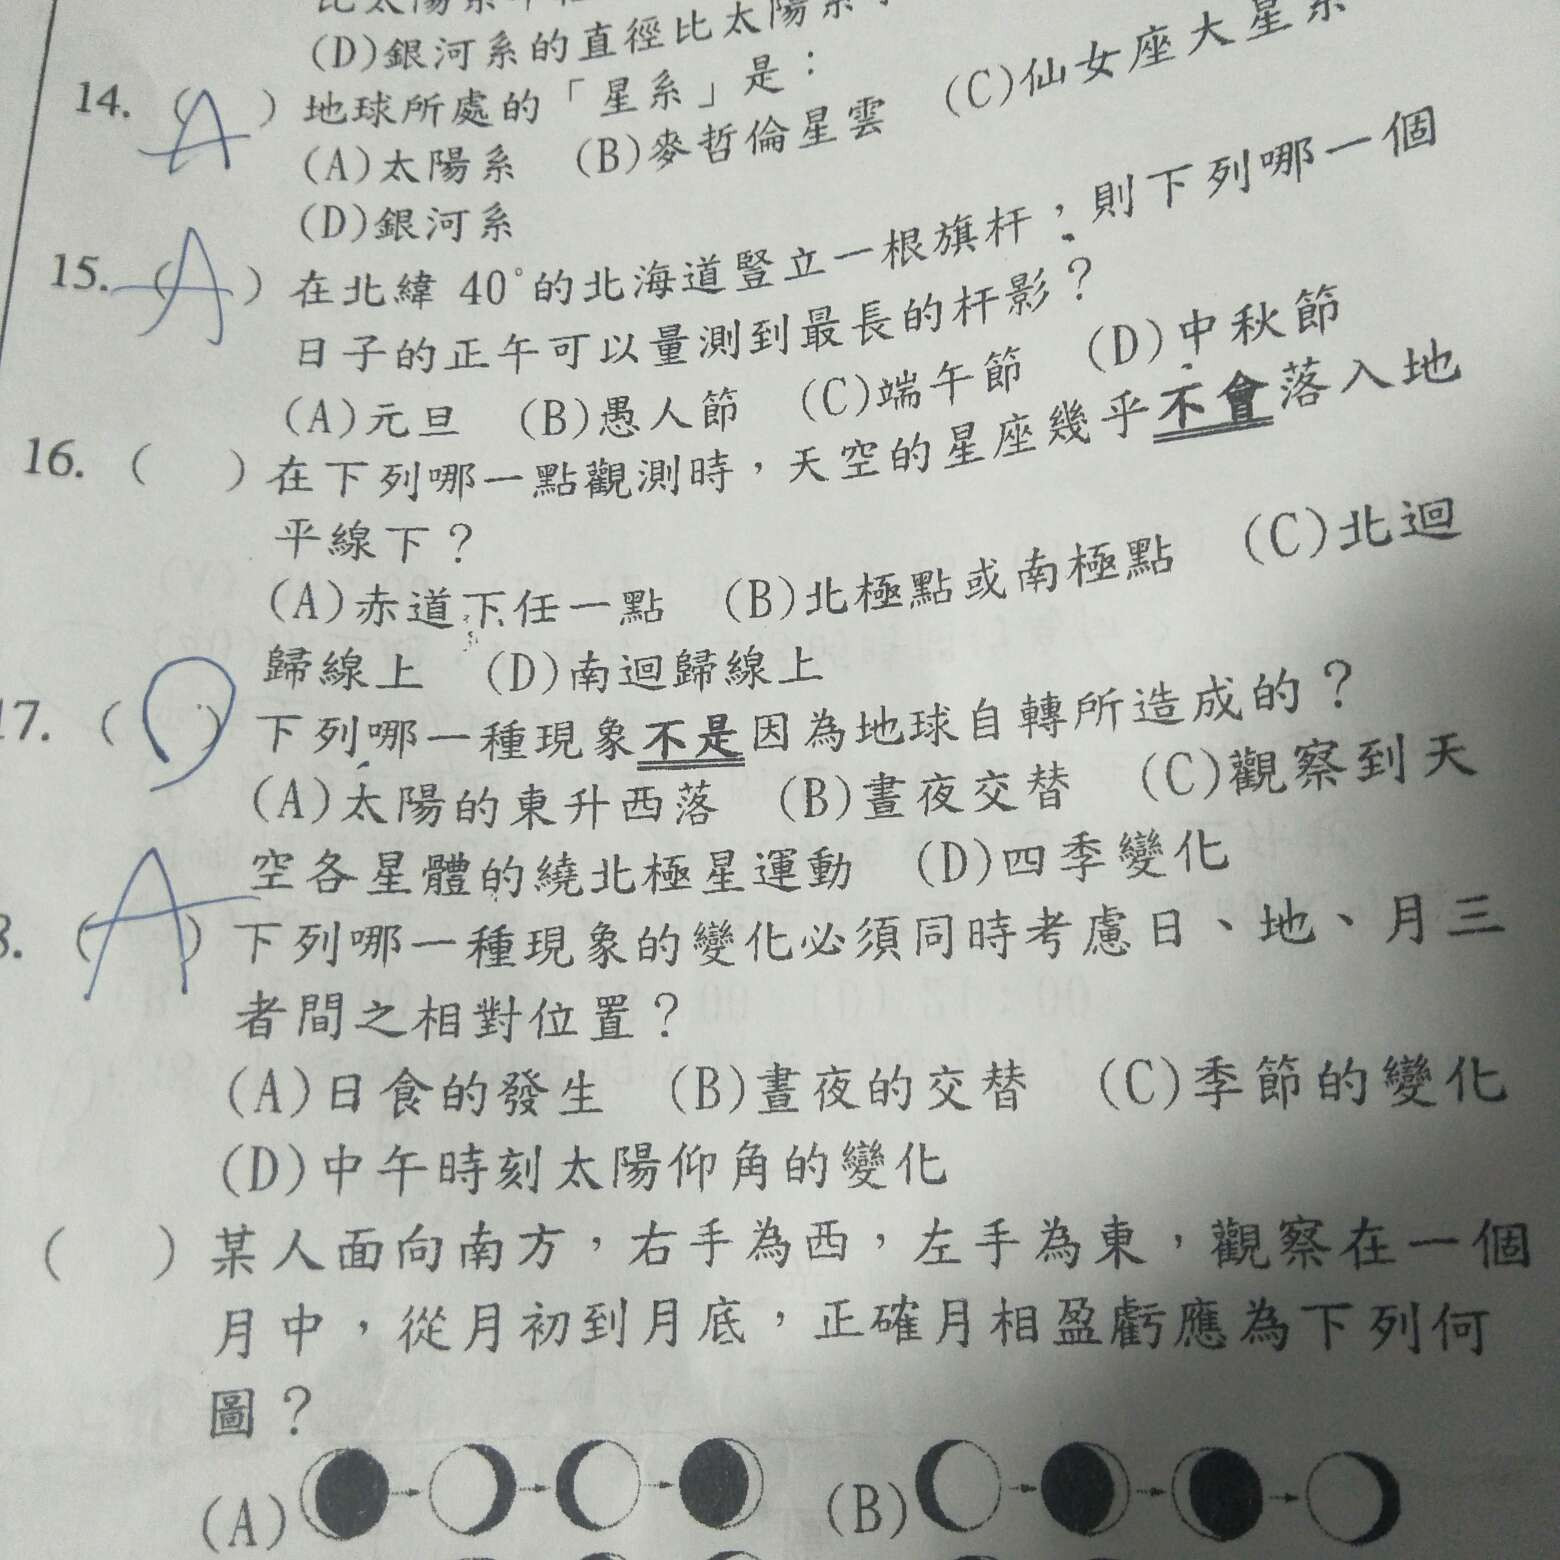 (D)銀河系的直徑比太陽系
14. (A) 地球所處的「星系」是：
(A)太陽系 (B)麥哲倫星雲 (C)仙女座大星系
(D)銀河系
15. (A) 在北緯 40°的北海道豎立一根旗杆，則下列哪一個
日子的正午可以量測到最長的杆影？
(A)元旦 (B)愚人節 (C)端午節 (D)中秋節
16. ( ) 在下列哪一點觀測時，天空的星座幾乎不會落入地
平線下？
(A)赤道下任一點 (B)北極點或南極點 (C)北迴
歸線上 (D)南迴歸線上
17. ( ) 下列哪一種現象不是因為地球自轉所造成的？
(A)太陽的東升西落 (B)晝夜交替 (C)觀察到天
空各星體的繞北極星運動 (D)四季變化
8. (A) 下列哪一種現象的變化必須同時考慮日、地、月三
者間之相對位置？
(A)日食的發生 (B)晝夜的交替 (C)季節的變化
(D)中午時刻太陽仰角的變化
( ) 某人面向南方，右手為西，左手為東，觀察在一個
月中，從月初到月底，正確月相盈虧應為下列何
圖？
(A) (B)